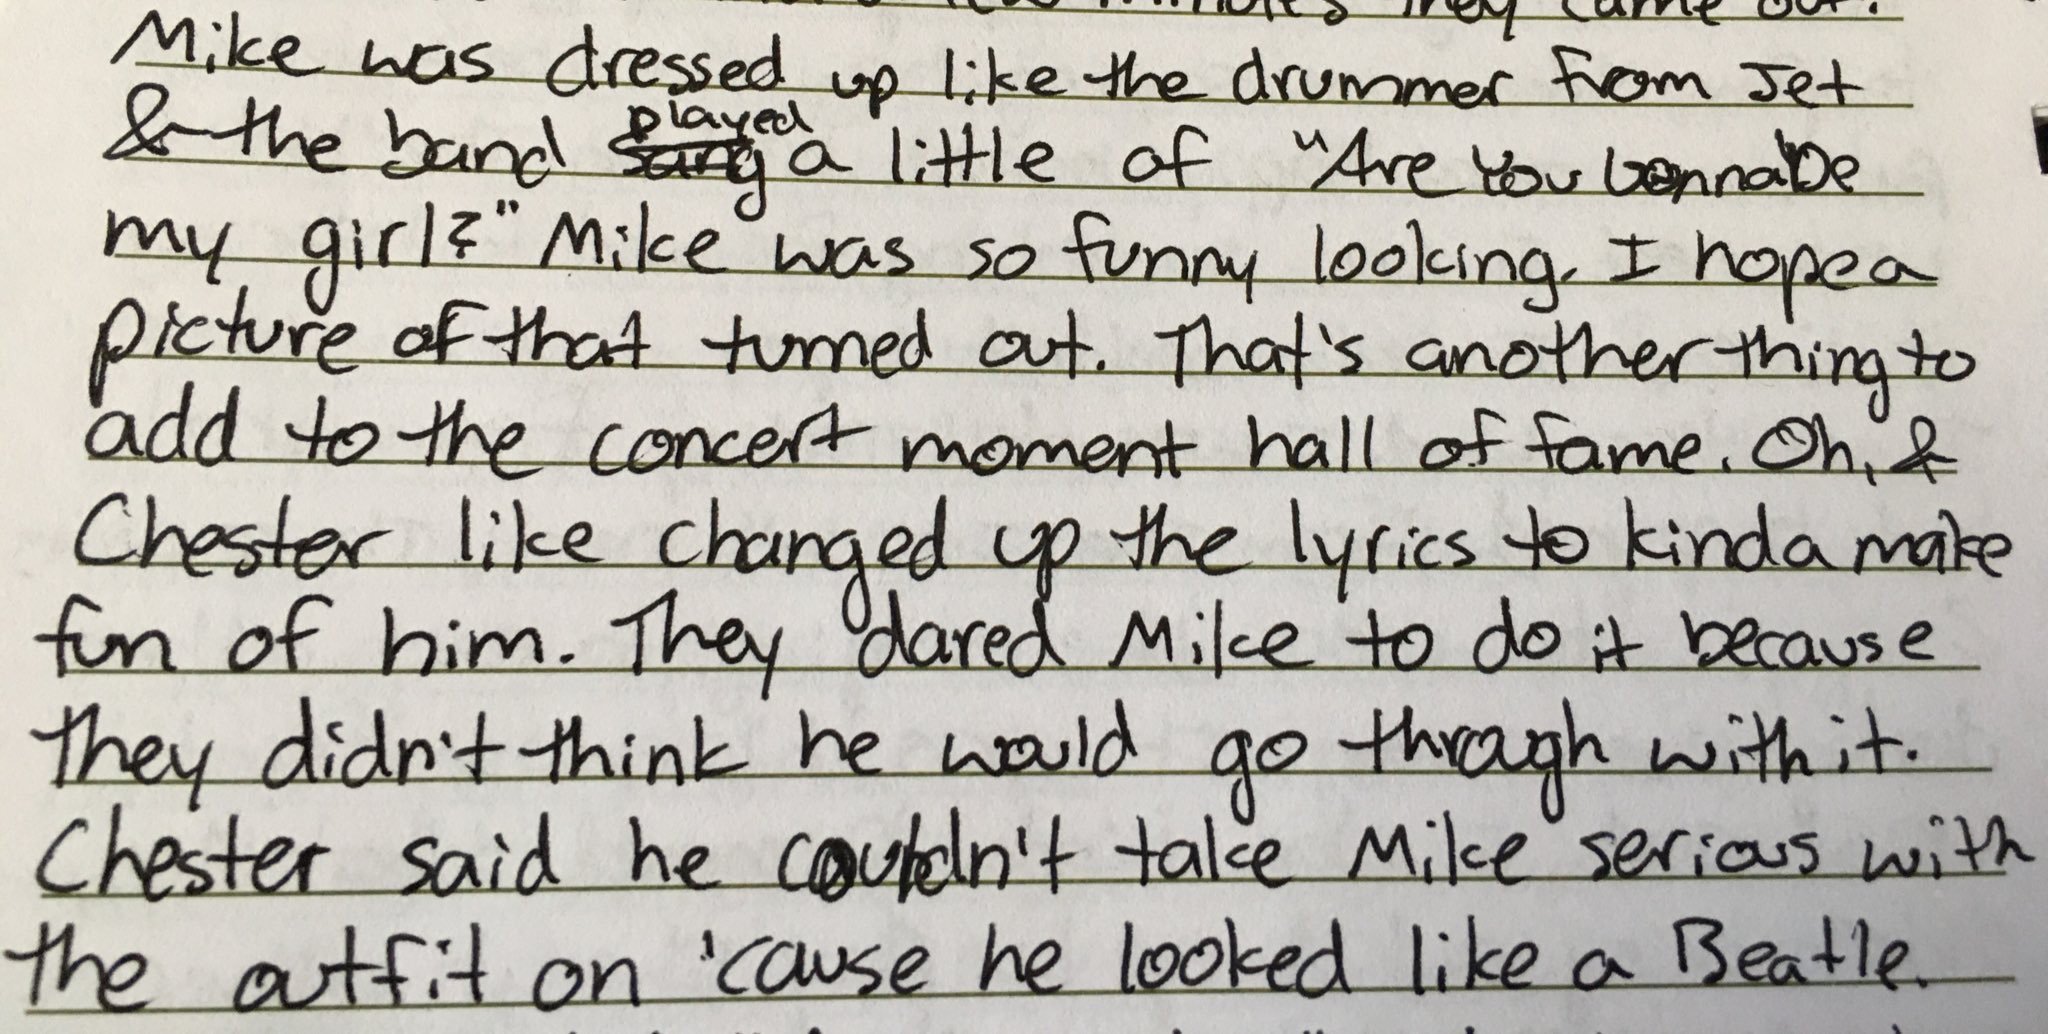 few minutes they came out.
Mike was dressed up like the drummer from Jet
& the band played a little of "Are You Gonna Be
my girl?" Mike was so funny looking. I hope a
picture of that turned out. That's another thing to
add to the concert moment hall of fame. Oh, &
Chester like changed up the lyrics to kinda make
fun of him. They dared Mike to do it because
they didn't think he would go through with it.
Chester said he couldn't take Mike serious with
the outfit on 'cause he looked like a Beatle.